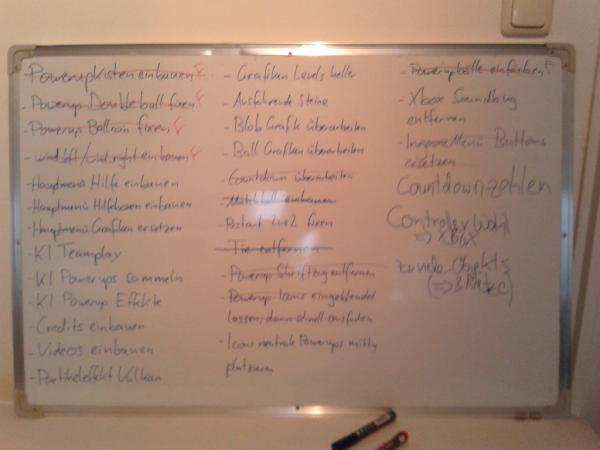 - Powerupkisten einbauen F
- Powerup Doubleball fixen F
- Powerup Ballrain fixen F
- wind left/wind right einbauen F
- Hauptmenü Hilfe einbauen
- Hauptmenü Hilfeboxen einbauen
- Hauptmenü Grafiken ersetzen
- KI Teamplay
- KI Powerups sammeln
- KI Powerup Effekte
- Credits einbauen
- Videos einbauen
- Partikeleffekt Vulkan
- Grafiken Levels heller
- Ausführende Steine
- Blob Grafik überarbeiten
- Ball Grafiken überarbeiten
- Countdown überarbeiten
- Matchball einbauen
- Restart 2vs2 fixen
- Tie entfernen
- Powerup Schriftzug entfernen
- Powerup-Icons eingeblendet
lassen, dann schnell ausfaden
- Icons neutrale Powerups mittig
platzieren
- Powerupbälle einfärben F
- Xbox Soundbug
entfernen
- Ingame Menü Buttons
ersetzen
Countdownzahlen
Controller Wahl
=> XBOX
zu viele Objekte
(=> 3